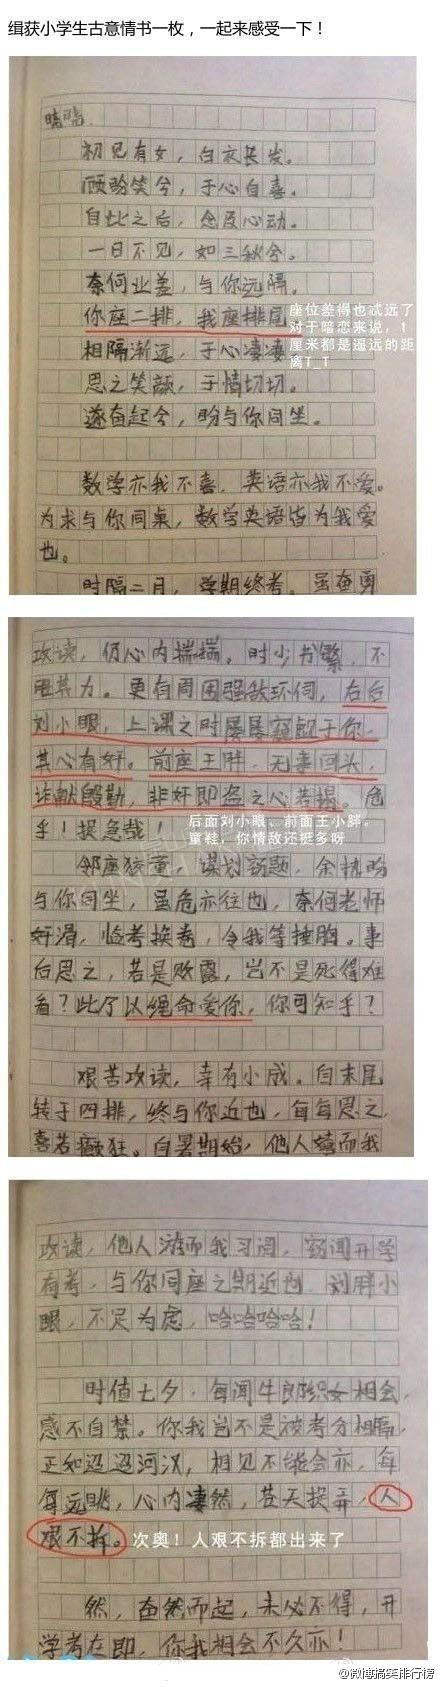 缉获小学生古意情书一枚，一起来感受一下！
晓晓
初见有女，白衣长发。
顾盼笑兮，于心自喜。
自比之后，念及心动。
一日不见，如三秋兮。
奈何业差，与你远隔。
你座二排，我座排尾
座位差得也忒远了
对于暗恋来说，1
厘米都是遥远的距
离T_T
相隔渐远，于心凄凄
思之笑颜，于情切切。
遂奋起兮，盼与你同坐。
数学亦我不喜，英语亦我不爱。
为求与你同桌，数学英语皆为我爱
也。
时隔二月，学期终考。虽奋勇
攻读，仍心内揣揣。时少书繁，不
胜其力。更有周围强敌环伺，右后
刘小眼，上课之时屡屡窥觊于你，
其心有奸。前座王胖，无事回头，
诈献殷勤，非奸即盗之心若揭。危
乎！揑急哉！
后面刘小眼、前面王小胖。
童鞋，你情敌还挺多呀
邻座狡童，谋划窃题，余
与你同坐，虽危亦往也，奈何老师
奸滑，临考换卷，令我等捶胸。事
后思之，若是败露，岂不是死得难
看？此乃以绳命爱你，你可知乎？
艰苦攻读，幸有小成。自末尾
转于四排，终与你近也，每每思之，
喜若癫狂。自暑期始，他人嬉而我
攻读，他人游而我习阅，窃闻开学
有考，与你同座之期近也，刘胖小
眼，不足为虑，哈哈哈哈！
时值七夕，每闻牛郎织女相会，
感不自禁。你我岂不是被考分相隔，
正如迢迢河汉，相见不能会亦，每
每远眺，心内凄然，苍天捉弄，人
艰不拆。
次奥！人艰不拆都出来了
然，奋然而起，未必不得，开
学考在即，你我相会不久亦！
@微博搞笑排行榜